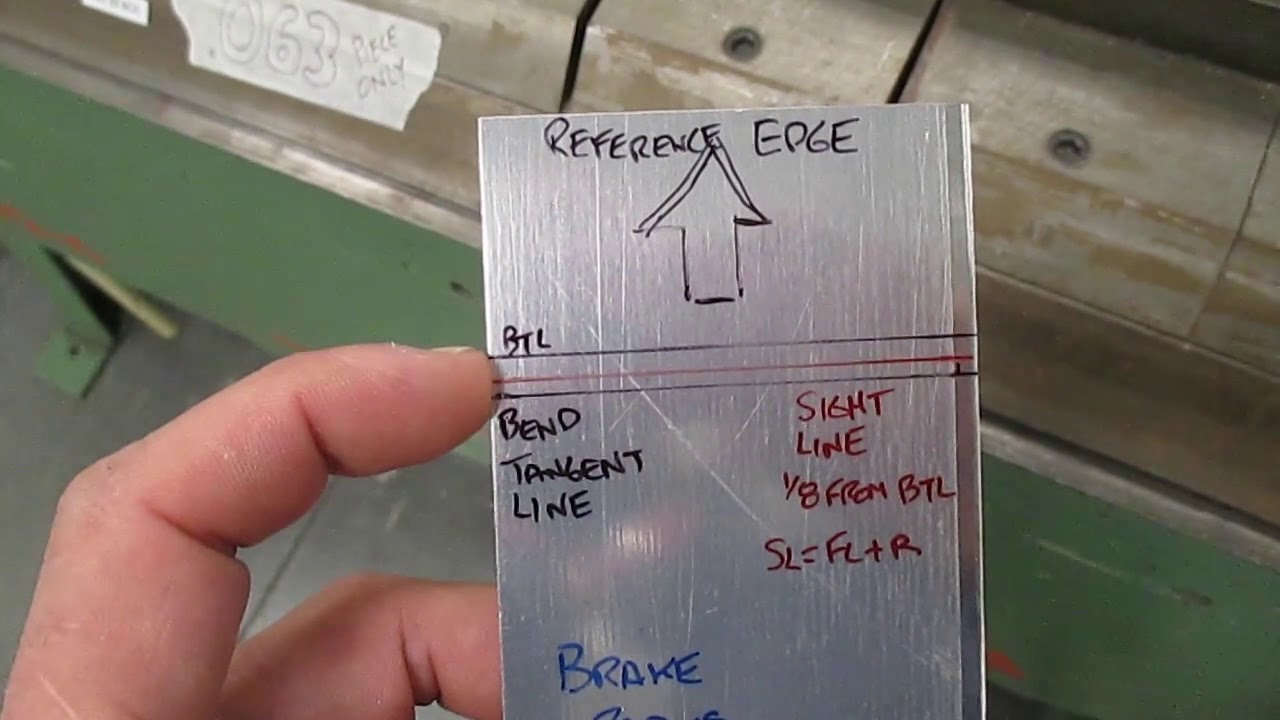 .063 PIECE
ONLY
REFERENCE EDGE
BTL
BEND
TANGENT
LINE
SIGHT
LINE
1/8 FROM BTL
SL=FL+R
BRAKE